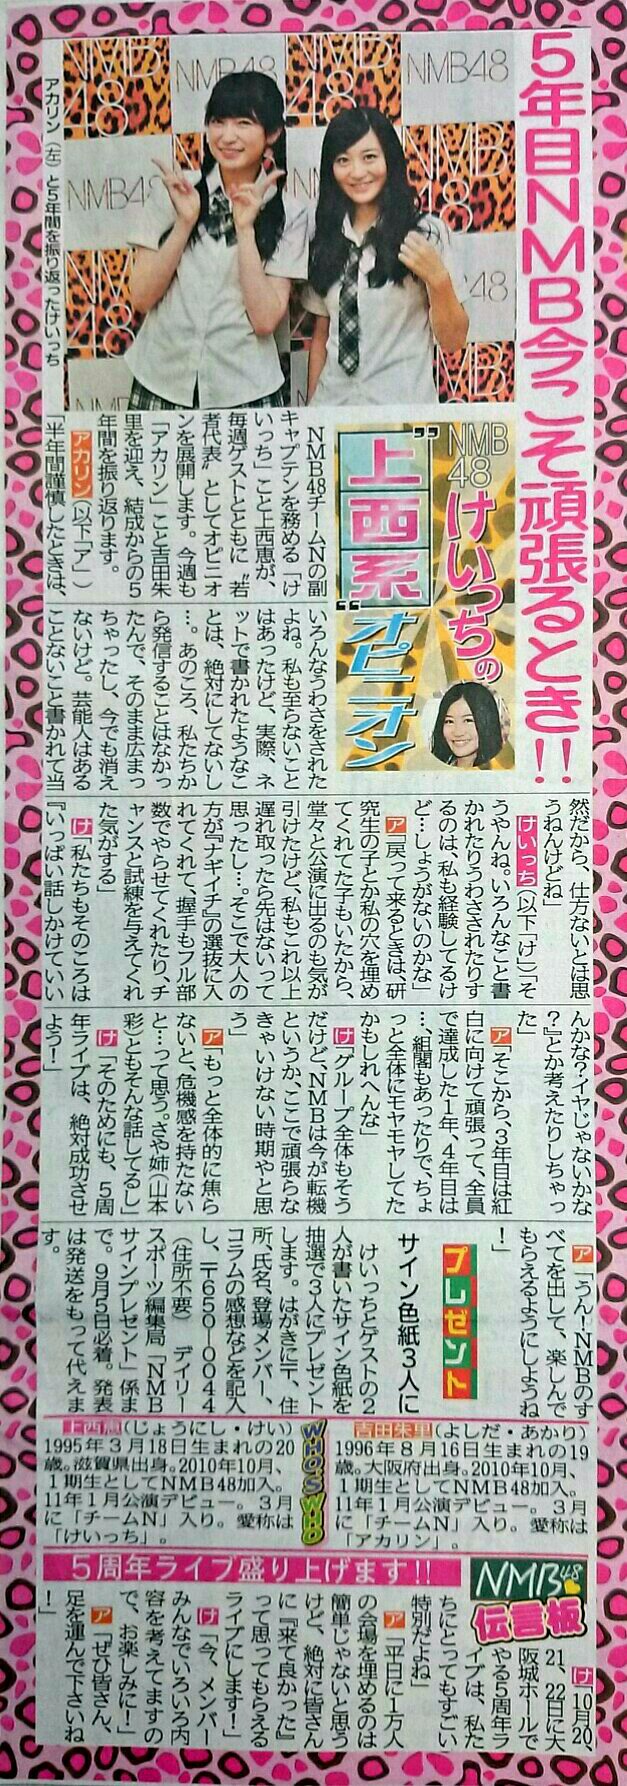 5年目NMB今こそ頑張るとき!!
NMB48
アカリン(左)と5年間を振り返ったけいっち
NMB
48
けいっちの
"上西系"
オピニオン
NMB48チームNの副
キャプテンを務める「け
いっち」こと上西恵が、
毎週ゲストとともに〝若
者代表〟としてオピニオ
ンを展開します。今週も
「アカリン」こと吉田朱
里を迎え、結成からの5
年間を振り返ります。
アカリン(以下「ア」)
「半年間謹慎したときは、
いろんなうわさをされた
よね。私も至らないこと
はあったけど、実際、ネ
ットで書かれたようなこ
とは、絶対にしてないし
…。あのころ、私たちか
ら発信することはなかっ
たんで、そのまま広まっ
ちゃったし、今でも消え
ないけど。芸能人はある
ことないこと書かれて当
然だから、仕方ないとは思
うねんけどね」
けいっち(以下「け」)「そ
うやんね。いろんなこと書
かれたりうわさされたりす
るのは、私も経験してるけ
ど…しょうがないのかな」
ア「戻って来るときは、研
究生の子とか私の穴を埋め
てくれてた子もいたから、
堂々と公演に出るのも気が
引けたけど、私もこれ以上
遅れ取ったら先はないって
思ったし…。そこで大人の
方が『ナギイチ』の選抜に入
れてくれて、握手もフル部
数でやらせてくれたり、チ
ャンスと試練を与えてくれ
た気がする」
け「私たちもそのころは
『いっぱい話しかけていい
んかな?イヤじゃないかな
?』とか考えたりしちゃっ
た」
ア「そこから、3年目は紅
白に向けて頑張って、全員
で達成した1年、4年目は
…、組閣もあったりで、ちょ
っと全体にモヤモヤしてた
かもしれへんな」
け「グループ全体もそう
だけど、NMBは今が転機
というか、ここで頑張らな
きゃいけない時期やと思
う」
ア「もっと全体的に焦ら
ないと、危機感を持たない
と…って思う。さや姉(山本
彩)ともそんな話してるし」
け「そのためにも、5周
年ライブは、絶対成功させ
よう!」
ア「うん!NMBのす
べてを出して、楽しんで
もらえるようにしようね
!」
プレゼント
サイン色紙3人に
けいっちとゲストの2
人が書いたサイン色紙を
抽選で3人にプレゼント
します。はがきに〒、住
所、氏名、登場メンバー、
コラムの感想などを記入
し、〒650-0044
(住所不要) デイリー
スポーツ編集局「NMB
サインプレゼント」係ま
で。9月5日必着。発表
は発送をもって代えま
す。
上西恵(じょうにし・けい)
1995年3月18日生まれの20
歳。滋賀県出身。2010年10月、
1期生としてNMB48加入。
11年1月公演デビュー。3月
に「チームN」入り。愛称は
「けいっち」。
WHO'S WHO
吉田朱里(よしだ・あかり)
1996年8月16日生まれの19
歳。大阪府出身。2010年10月、
1期生としてNMB48加入。
11年1月公演デビュー。3月
に「チームN」入り。愛称は
「アカリン」。
5周年ライブ盛り上げます!!
NMB48
伝言板
け「10月20、
21、22日に大
阪城ホールで
やる5周年ラ
イブは、私た
ちにとってもすごい
特別だよね」
ア「平日に1万人
の会場を埋めるのは
簡単じゃないと思う
けど、絶対に皆さん
に『来て良かった』
って思ってもらえる
ライブにします!」
け「今、メンバー
みんなでいろいろ内
容を考えてますの
で、お楽しみに!」
ア「ぜひ皆さん、
足を運んで下さいね
!」